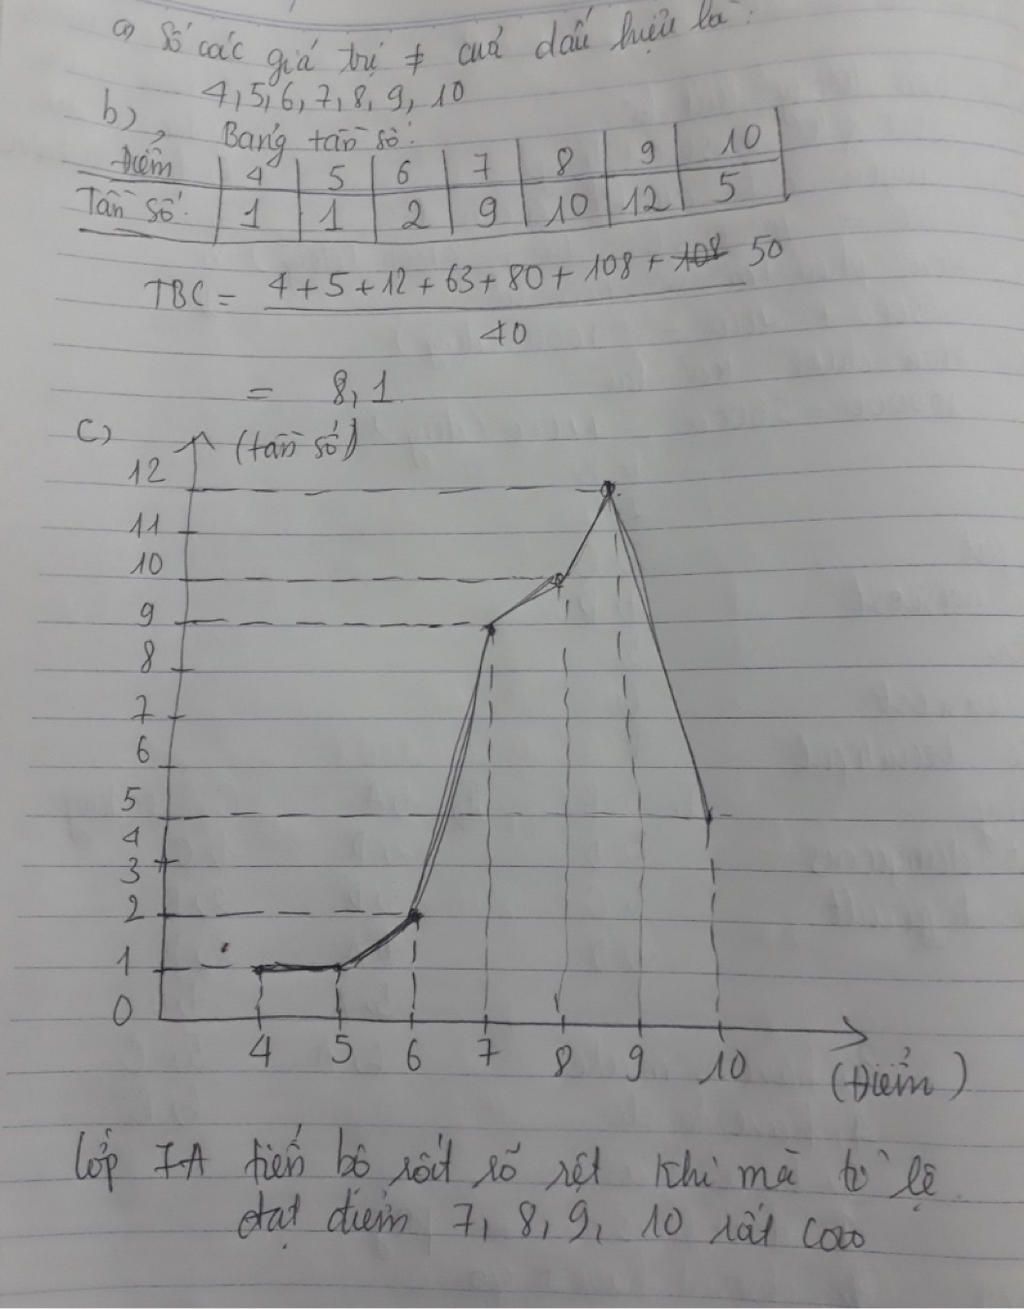 a) Số các giá trị ≠ của dấu hiệu là :
4, 5, 6, 7, 8, 9, 10
b) Bảng tần số :
Điểm 4 5 6 7 8 9 10
Tần số 1 1 2 9 10 12 5
TBC = 4+5+12+63+80+108+ 108 50
40
= 8,1
c) (tần số)
12
11
10
9
8
7
6
5
4
3
2
1
0
4 5 6 7 8 9 10 (Điểm)
lớp 7A tiến bộ rõ rệt khi mà tỉ lệ
đạt điểm 7, 8, 9, 10 rất cao